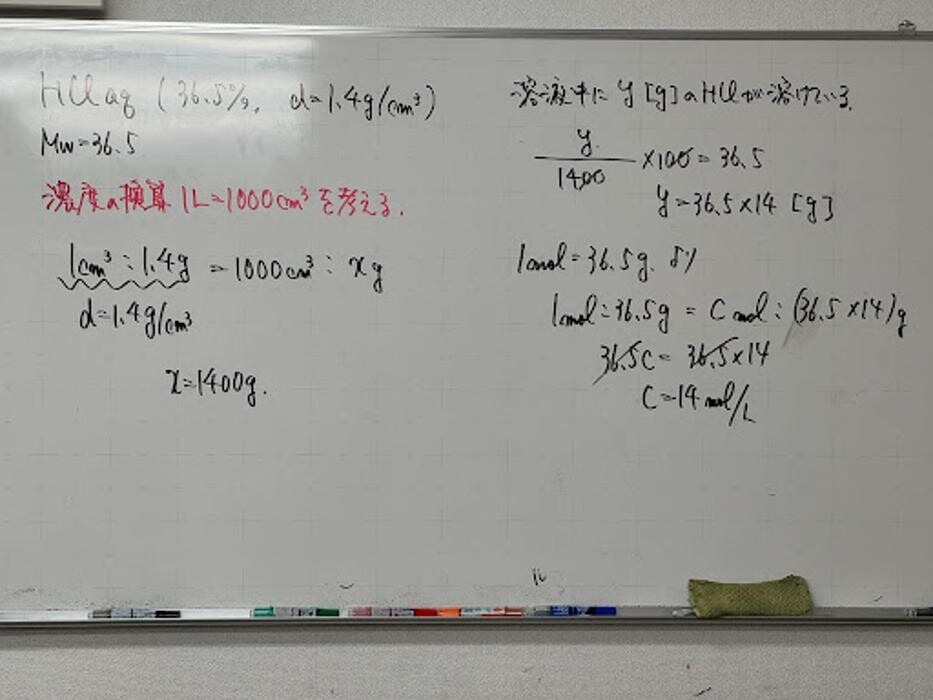 HClaq (36.5%, d=1.4g/cm³)
Mw=36.5
濃度の換算 1L=1000cm³を考える.
1cm³:1.4g = 1000cm³:xg
d=1.4g/cm³
x=1400g.
溶液中にy[g]のHClが溶けている.
y/1400 ×100=36.5
y=36.5×14 [g]
1mol=36.5g. より
1mol:36.5g = C mol:(36.5×14)g
36.5C = 36.5×14
C=14mol/L